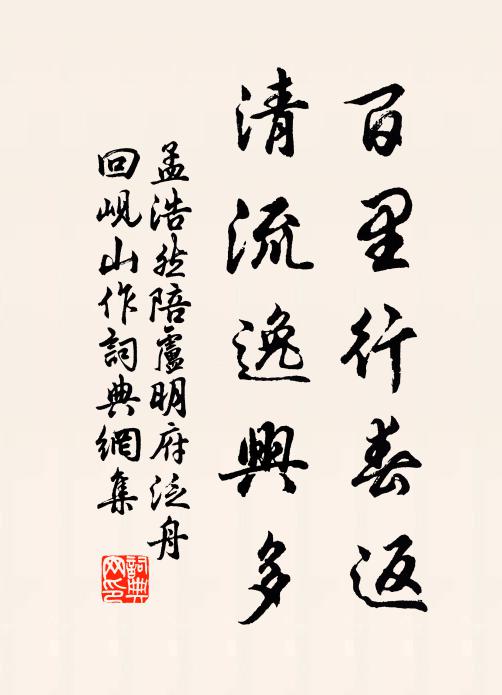 百里行春返
清流逸興多
孟浩然陪盧明府泛舟
回峴山作詞典網集
詞典
网印